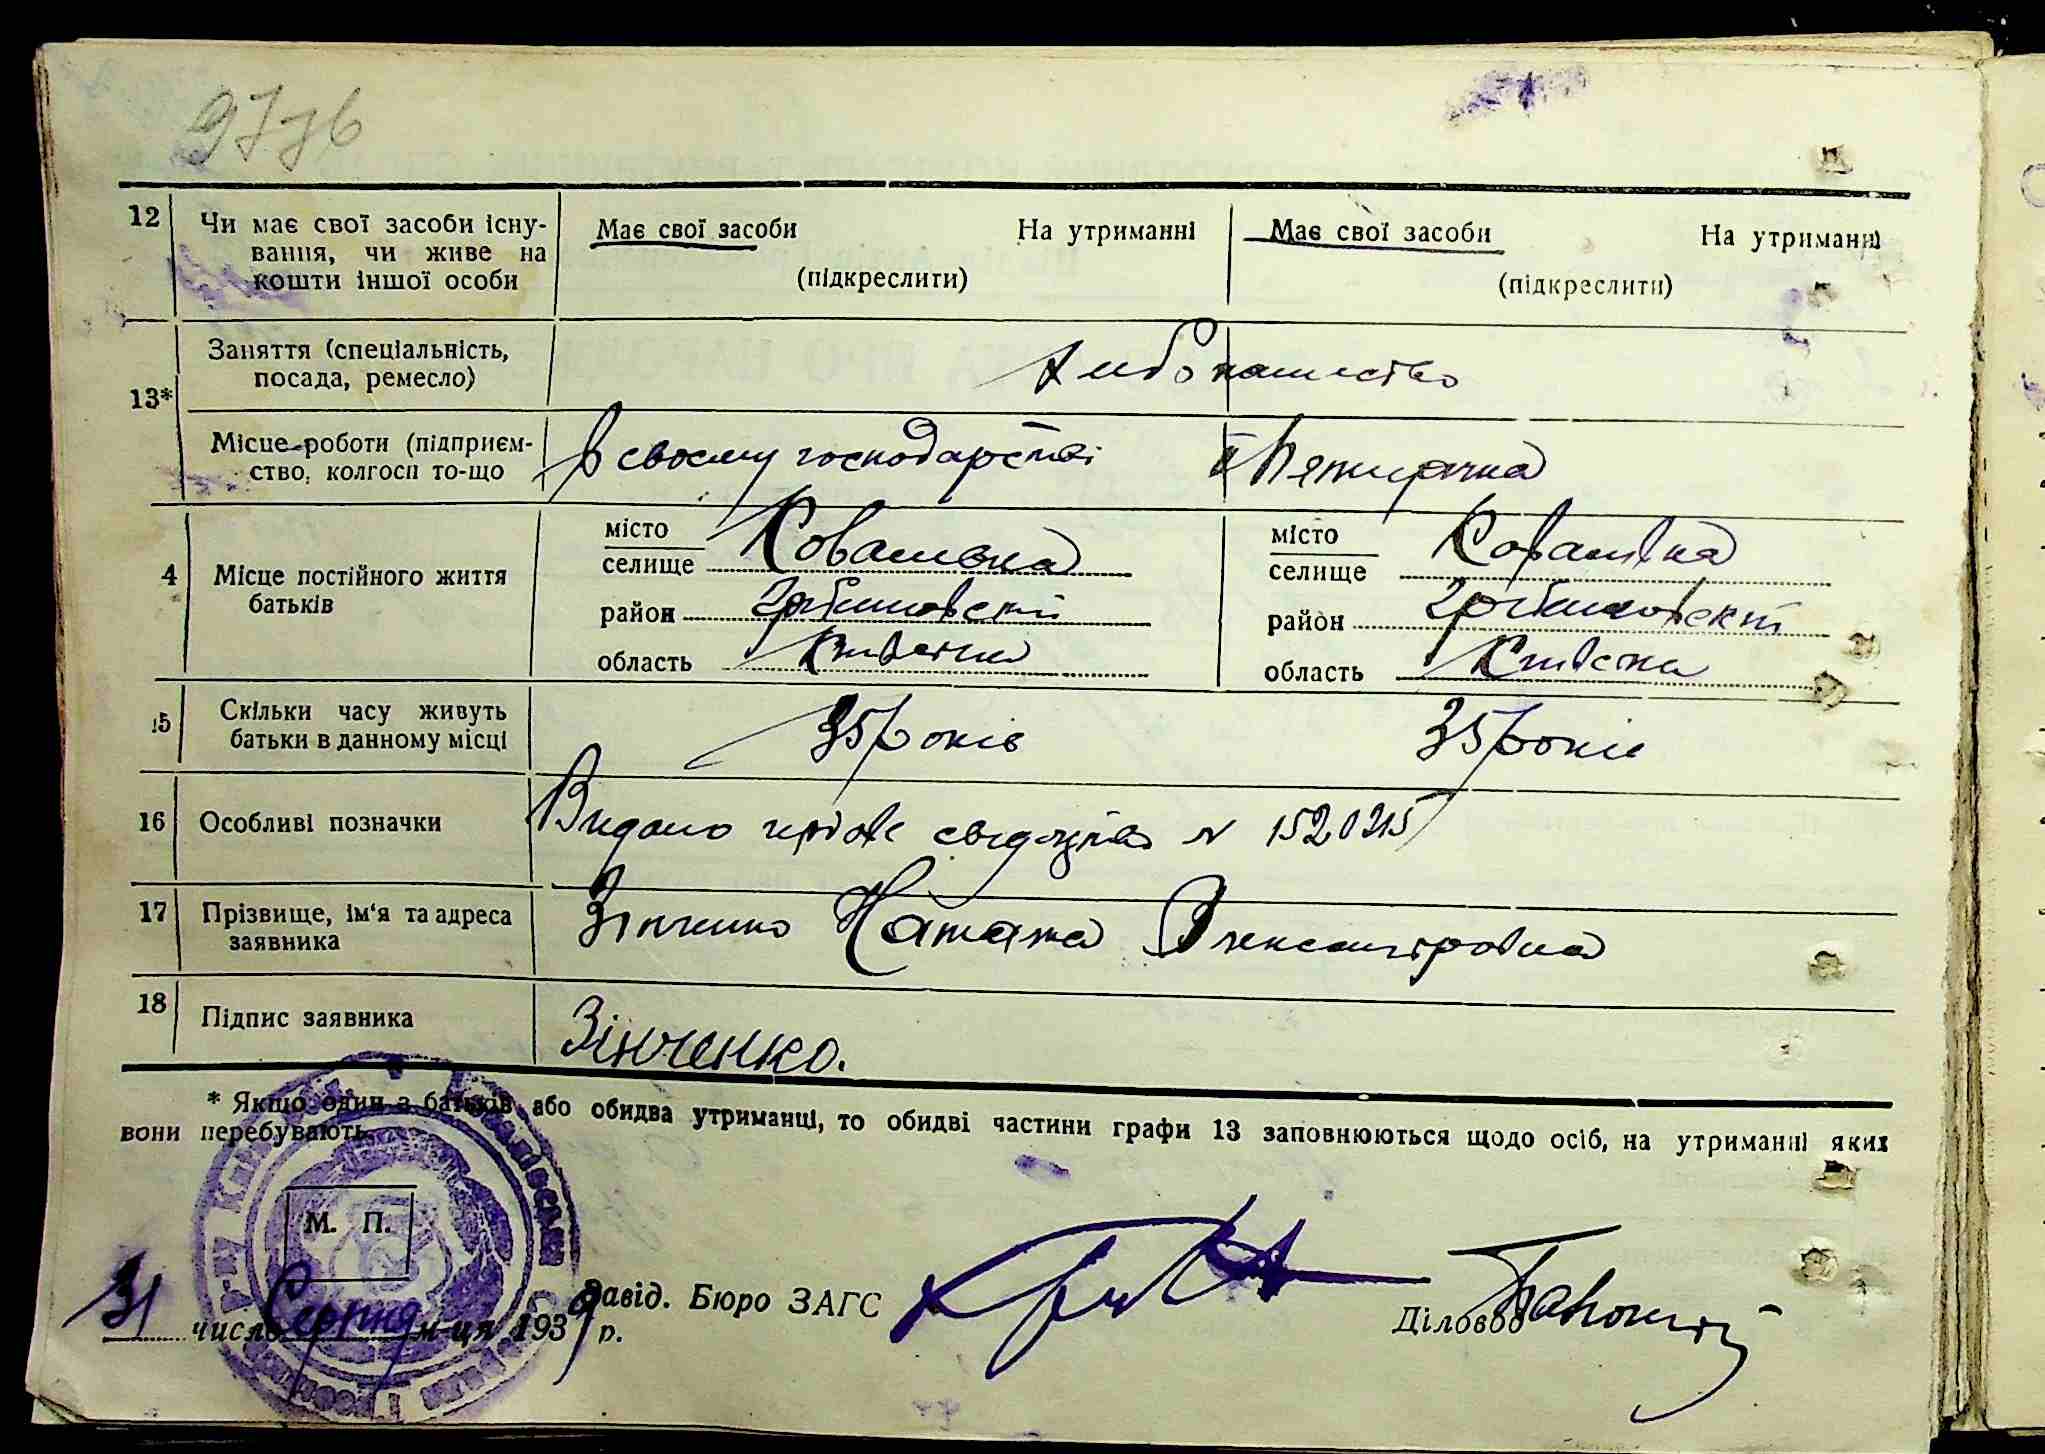 12 Чи має свої засоби існу-
вання, чи живе на
кошти іншої особи
Має свої засоби На утриманні
(підкреслити)
Має свої засоби На утриманні
(підкреслити)
13* Заняття (спеціальність,
посада, ремесло)
Місце роботи (підприєм-
ство, колгосп то-що
В своєму господарстві
4 Місце постійного життя
батьків
місто
селище Ковалівка
район
область Київська
місто
селище Ковалівка
район
область Київська
15 Скільки часу живуть
батьки в данному місці
35 років 35 років
16 Особливі позначки
Видано свідоцтво N 1520215
17 Прізвище, ім'я та адреса
заявника
Зінченко Олександровна
18 Підпис заявника
Зінченко.
* Якщо один з батьків або обидва утриманці, то обидві частини графи 13 заповнюються щодо осіб, на утриманні яких
вони перебувають.
М. П.
31 число Серпня м-ця 193 р.
Завід. Бюро ЗАГС
Діловод